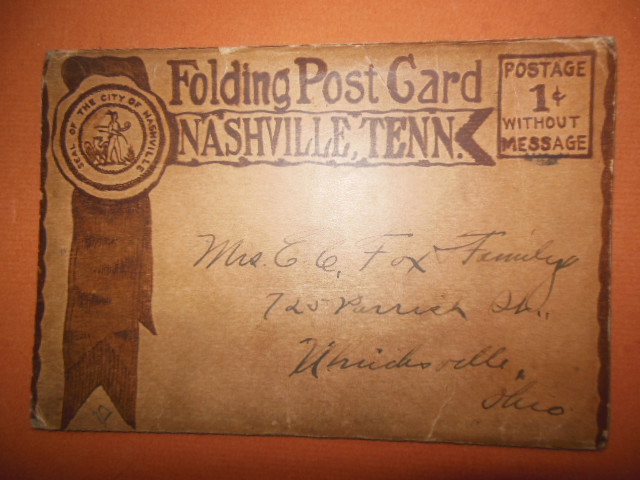 Folding Post Card
NASHVILLE, TENN.
SEAL OF THE CITY OF NASHVILLE
POSTAGE
1¢
WITHOUT
MESSAGE
Mrs. C C. Fox Family
725 Parrish St.,
Uhricksville,
Ohio